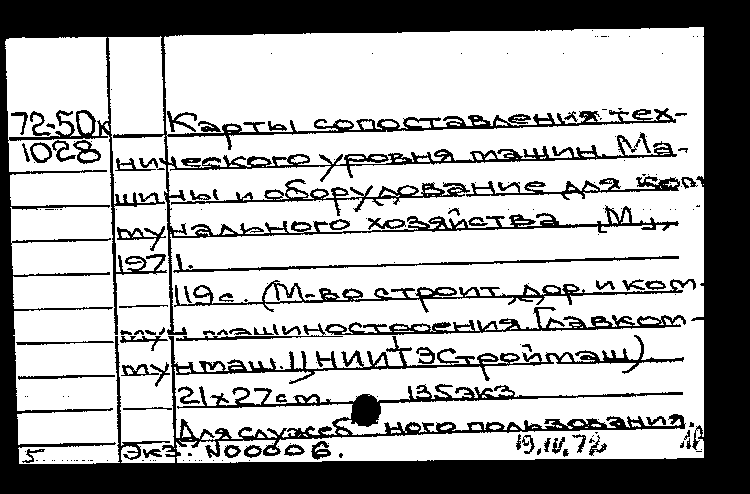 72-50к Карты сопоставления тех-
1028 нического уровня машин. Ма-
шины и оборудование для ком-
мунального хозяйства [М.],
1971.
119с. (М-во строит., дор. и ком-
мун. машиностроения. Главком-
мунмаш. ЦНИИТЭСтроймаш)
21х27см. 135экз.
Для служебного пользования.
5 Экз. N00006. 19.IV.72